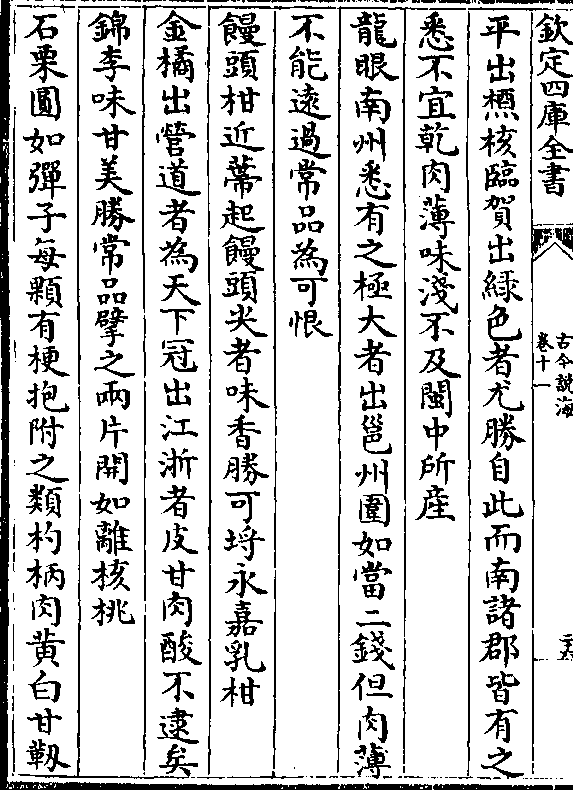 欽定四庫全書
古今說海
卷十一
平出槱核臨賀出綠色者尤勝自此而南諸郡皆有之
悉不宜乾肉薄味淺不及閩中所産
龍眼南州悉有之極大者出邕州圍如當二錢但肉薄
不能逺過常品為可恨
饅頭柑近蔕起饅頭尖者味香勝可埒永嘉乳柑
金橘出營道者為天下冠出江浙者皮甘肉酸不逮矣
錦李味甘美勝常品擘之兩片開如離核桃
石栗圓如彈子每顆有梗抱附之類杓柄肉黄白甘靱